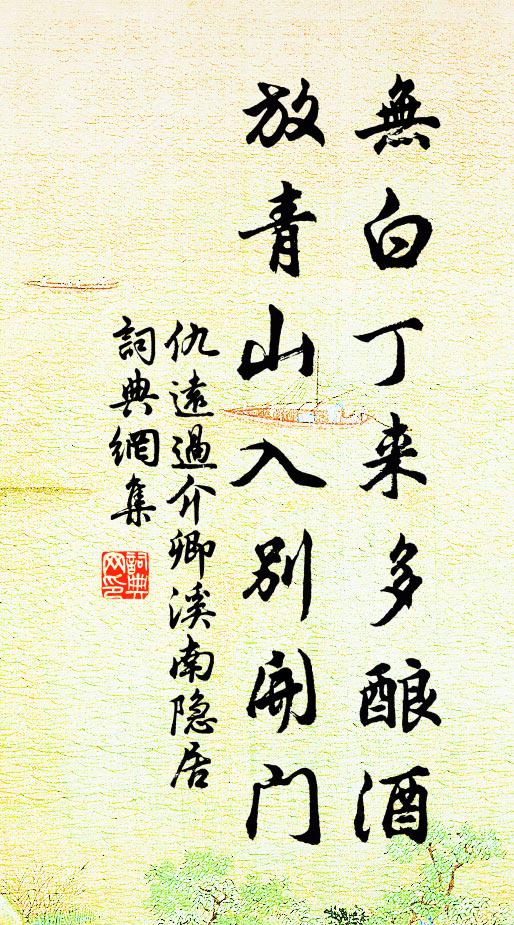 無白丁来多酿酒
放青山入别開门
仇遠過介卿溪南隐居
詞典網集
詞典网印